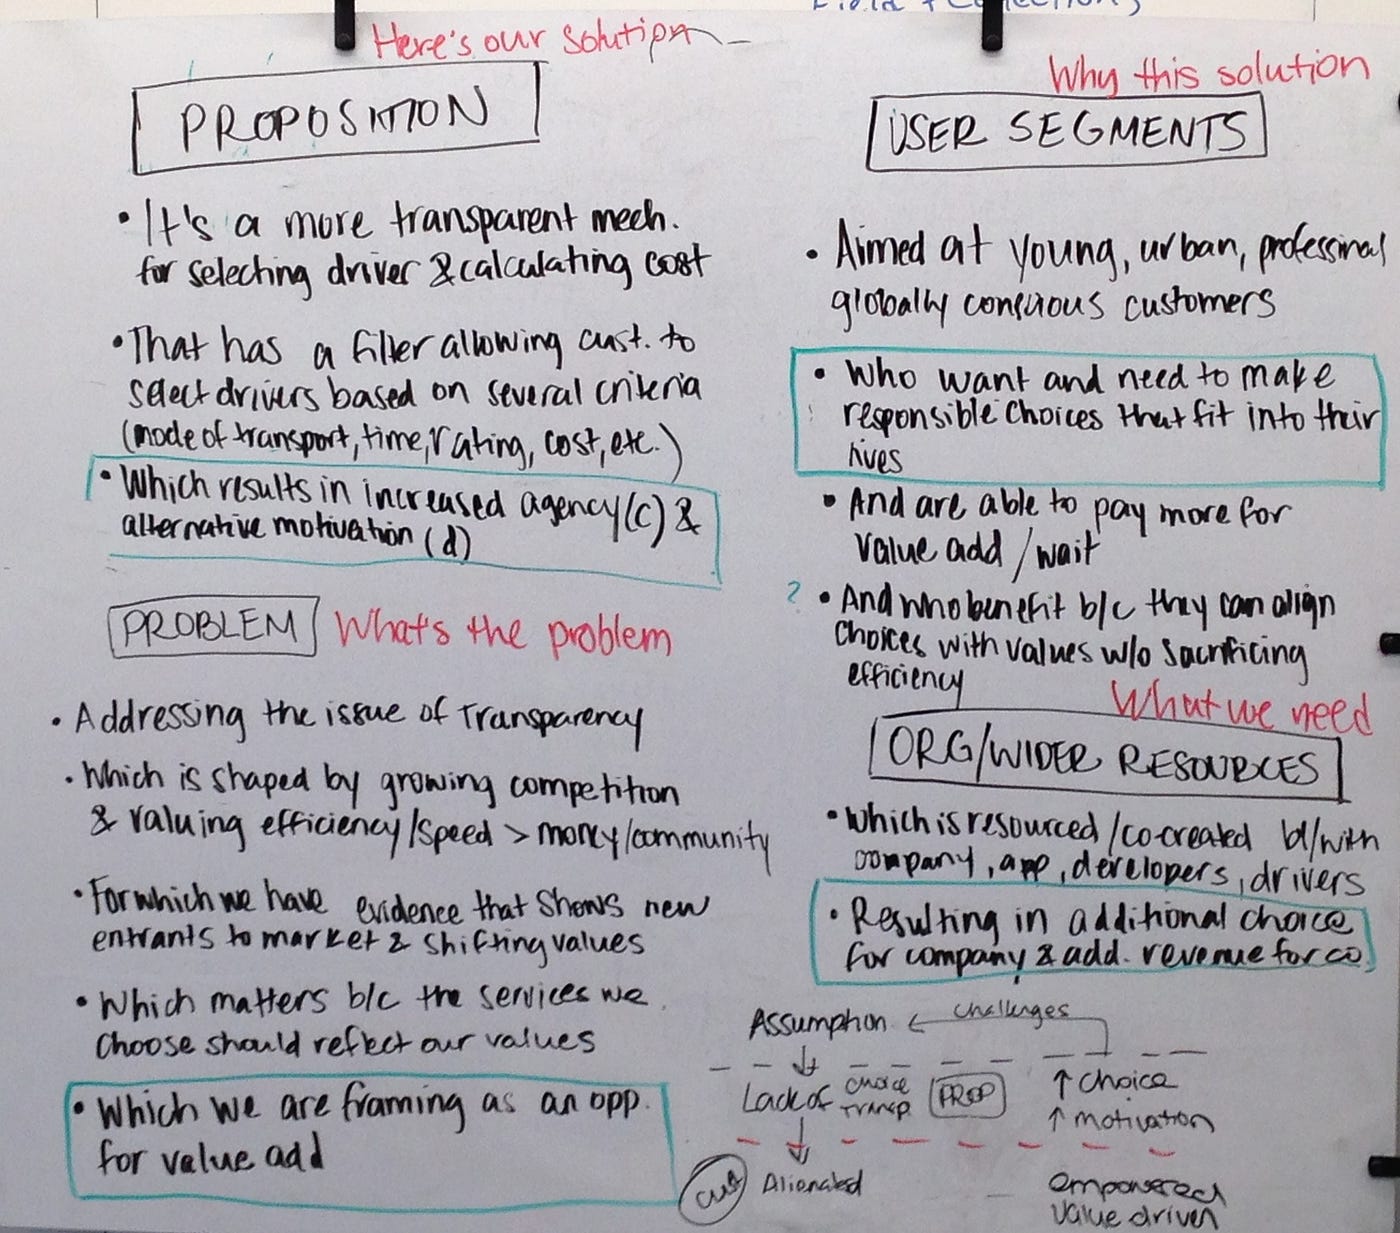 Here's our solution
PROPOSITION
• It's a more transparent mech.
for selecting driver & calculating cost
• That has a filter allowing cust. to
select drivers based on several criteria
(mode of transport, time, rating, cost, etc.)
• Which results in increased agency (c) &
alternative motivation (d)
PROBLEM What's the problem
• Addressing the issue of Transparency
• Which is shaped by growing competition
& valuing efficiency/speed > money/community
• For which we have evidence that shows new
entrants to market & shifting values
• Which matters b/c the services we
choose should reflect our values
• Which we are framing as an opp.
for value add
Why this solution
USER SEGMENTS
• Aimed at young, urban, professional
globally conscious customers
• Who want and need to make
responsible choices that fit into their
lives
• And are able to pay more for
value add / wait
? • And who benefit b/c they can align
choices with values w/o sacrificing
efficiency
What we need
ORG/WIDER RESOURCES
• Which is resourced / co-created by/with
company, app, developers, drivers
• Resulting in additional choice
for company & add. revenue for co.
Assumption ← challenges
Lack of choice
transp.
PROP
↑ choice
↑ motivation
cust
Alienated
empowered
value driven